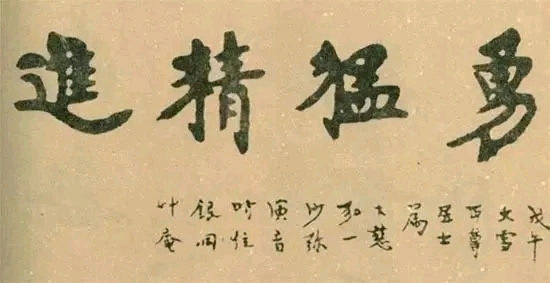 勇猛精進
戊午
大雪
丏尊
居士
屬
大慈
弘一
沙弥
演音
时住
銀洞
庵